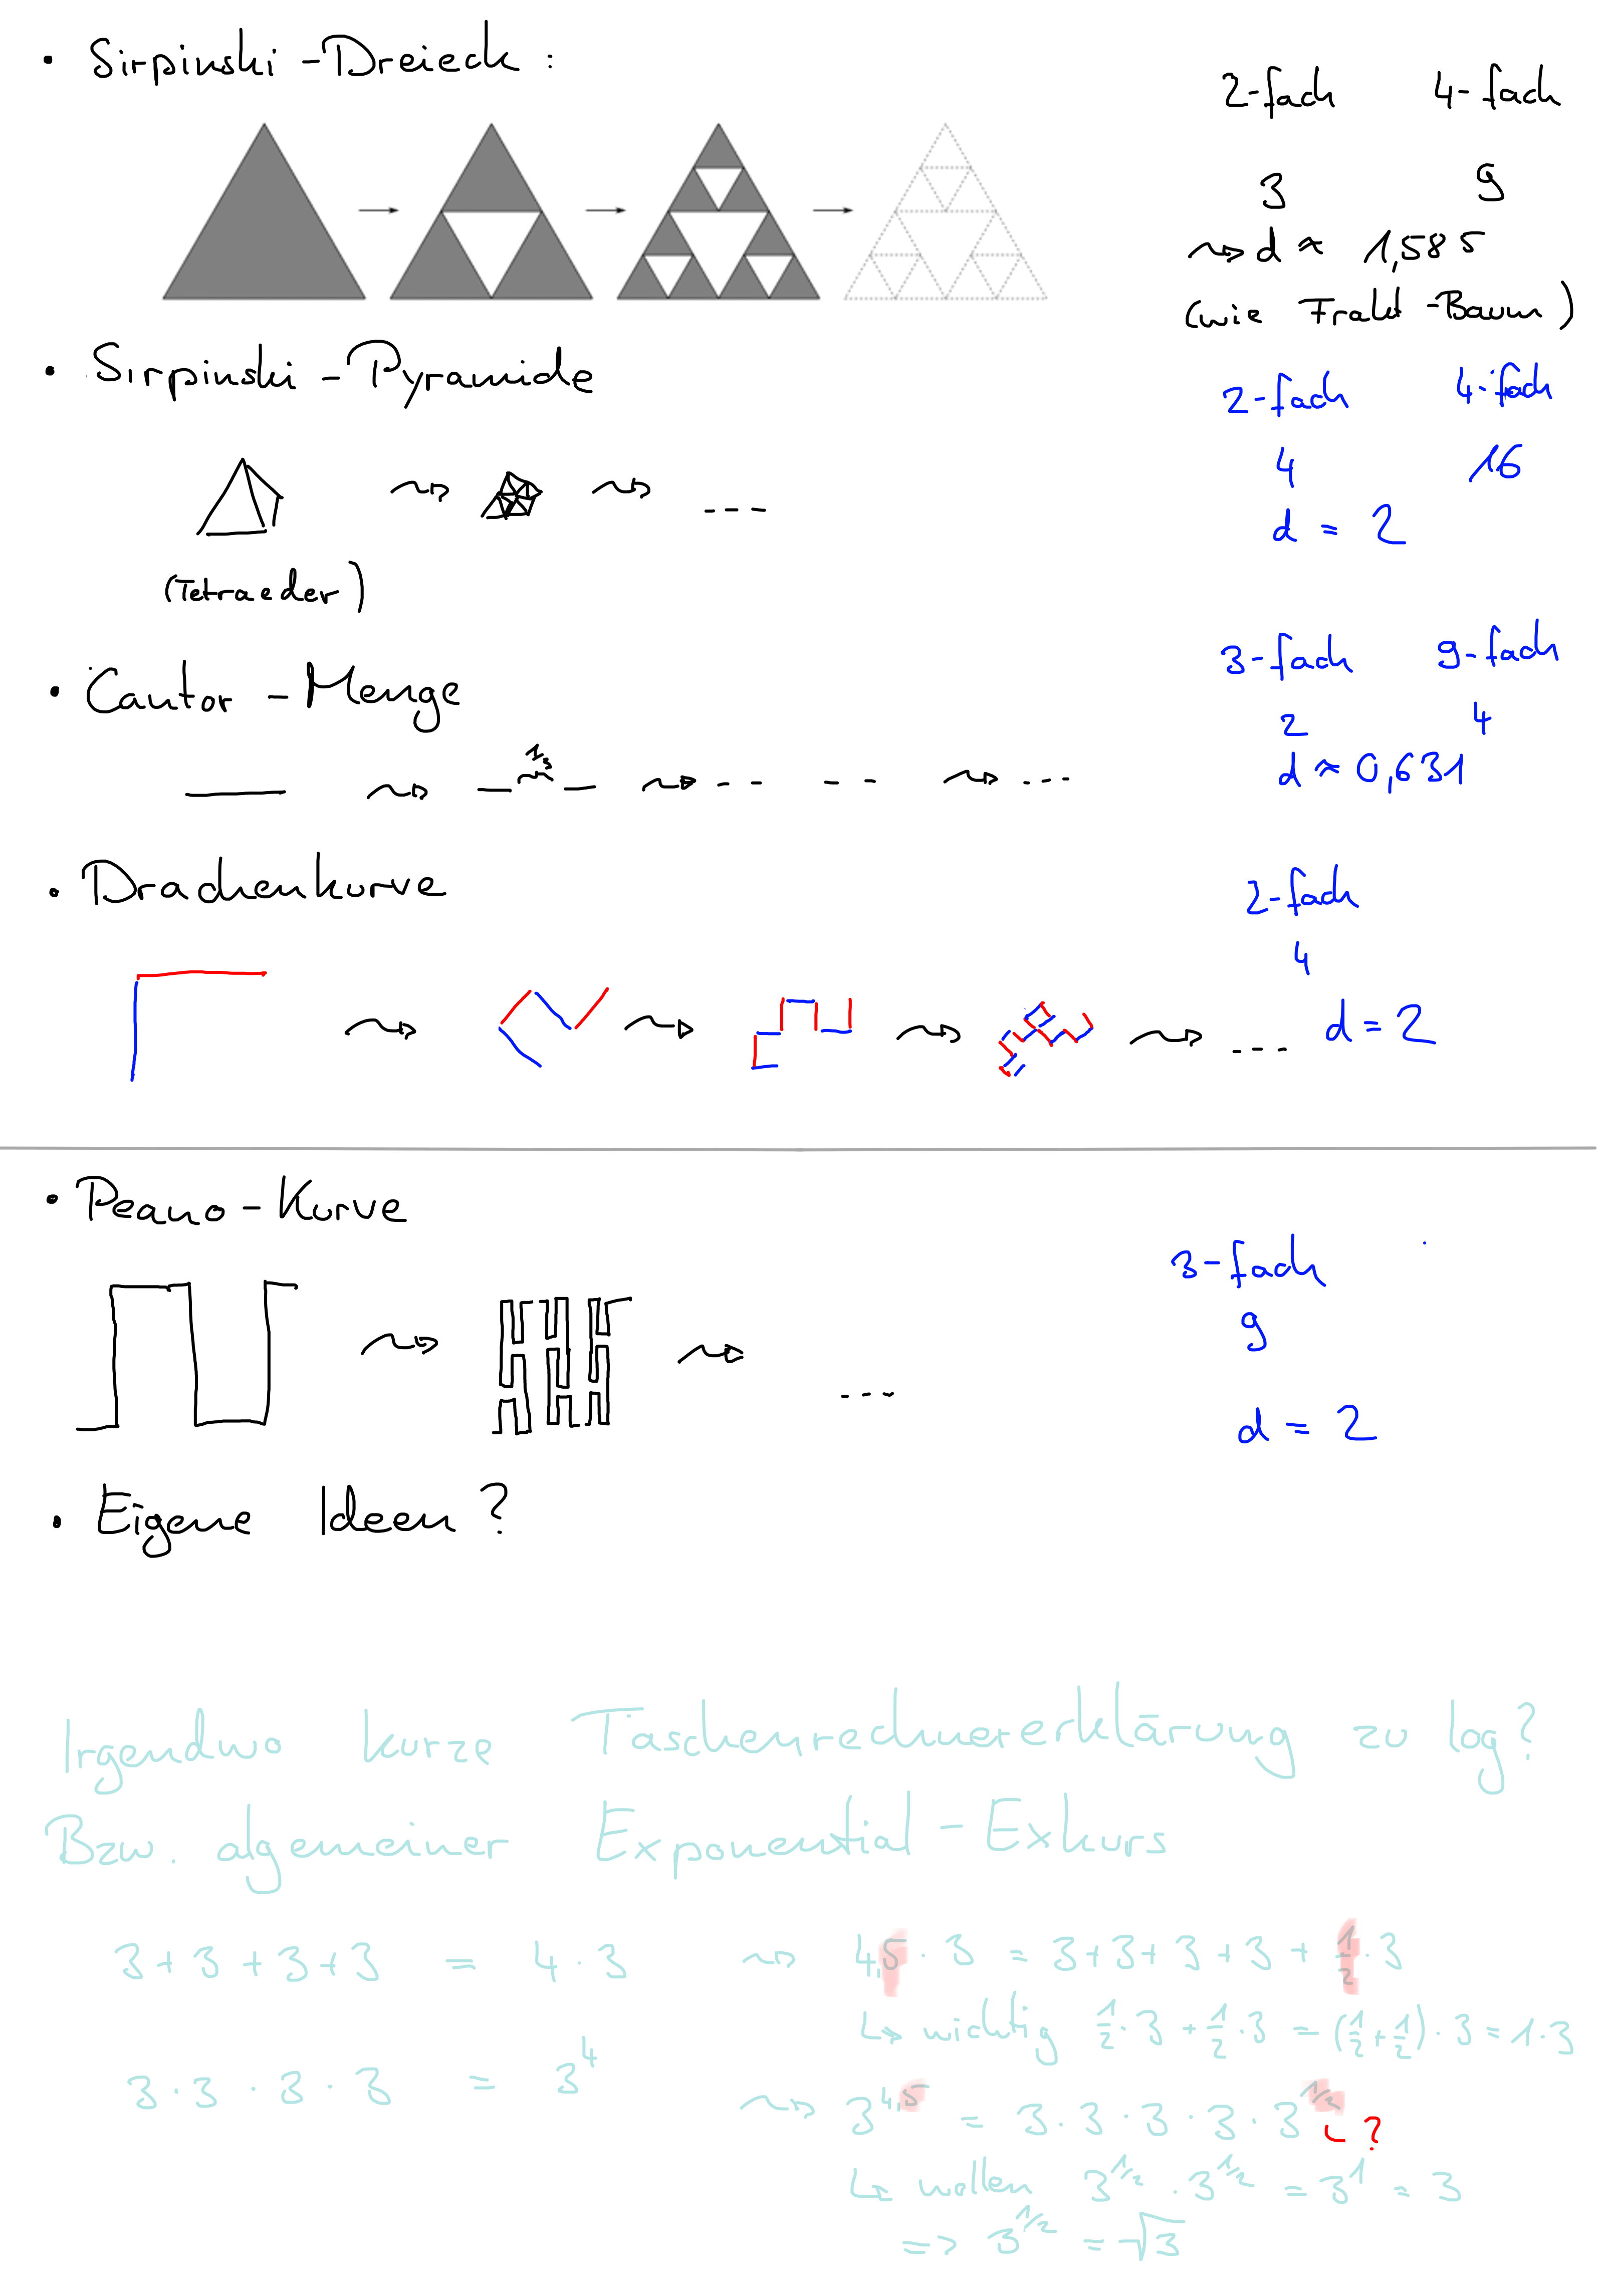 • Sirpinski-Dreieck:
2-fach 4-fach
3 9
⇝ d ≈ 1,585
(wie Frakt-Baum)
• Sirpinski-Pyramide
2-fach 4-fach
4 16
d = 2
⇝ ⇝ ---
(Tetraeder)
• Cantor-Menge
3-fach 9-fach
2 4
d ≈ 0,631
1/3
⇝ ⇝ ⇝ ---
• Drachenkurve
2-fach
4
d = 2
⇝ ⇝ ⇝ ⇝ ---
• Peano-Kurve
3-fach
9
d = 2
⇝ ⇝ ---
• Eigene Ideen?
Irgendwo kurze Taschenrechnererklärung zu log?
Bzw. algemeiner Exponential-Exkurs
3+3+3+3 = 4·3 ⇝ 4,5·3 = 3+3+3+3+1/2·3
↳ wichtig 1/2·3+1/2·3 = (1/2+1/2)·3 = 1·3
3·3·3·3 = 3^4
⇝ 3^4,5 = 3·3·3·3·3^1/2 ?
↳ wollen 3^1/2·3^1/2 = 3^1 = 3
=> 3^1/2 = √3